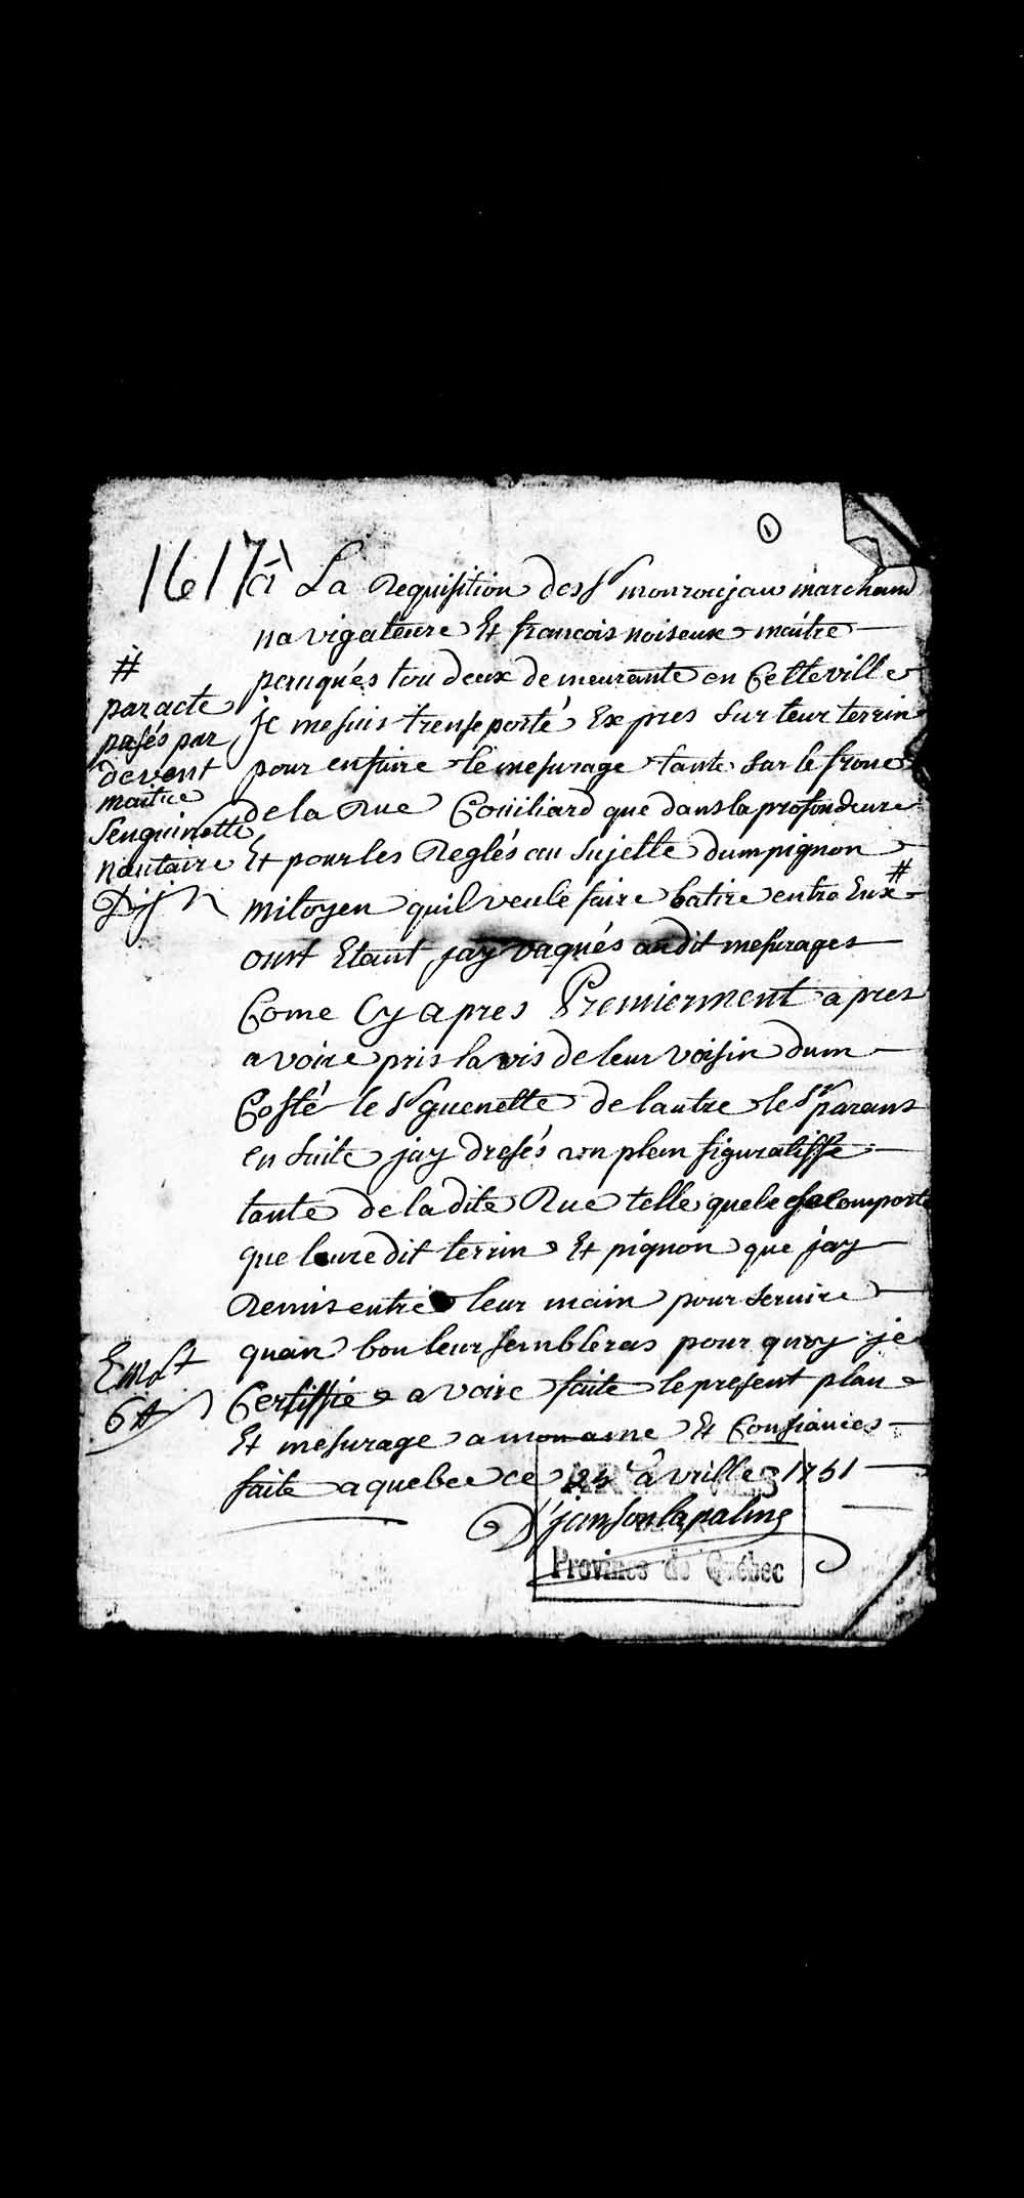 1
1617
à La Requisition des Sr monroujau marchand
navigateure Et francois noiseux maitre
peruqués tou deux demeurante en Cette ville
je me suis trensporté Expres Sur leur terrin
pour enfaire le mesurage tante Sur le frone
de la Rue Couiliard que dans la profondeure
Et pour les Reglés au Sujette dum pignon
mitoyen quil veule faire batire entre Eux #
ount Etant jay vaqués audit mesurages
Come Cy apres Premierment apres
avoire pris lavis de leur voisin dum
Costé le Sr guenette de lautre le Sr parans
en suite jay dresés un plan figuratiffe
tante de la dite Rue telle quele se Comporte
que leure dit terrin Et pignon que jay
Remis entre leur main pour servire
quan bon leur sembleras pour quoy je
Certiffie avoire faite le present plan
Et mesurage a mon ame Et Consiances
faite a quebec ce 24e avrille 1751
D janson lapalme
#
par acte
pasés par
devent
maitre
Senguinette
nautaire
D j
Emolt
6 #
ARCHIVES
Province de Québec